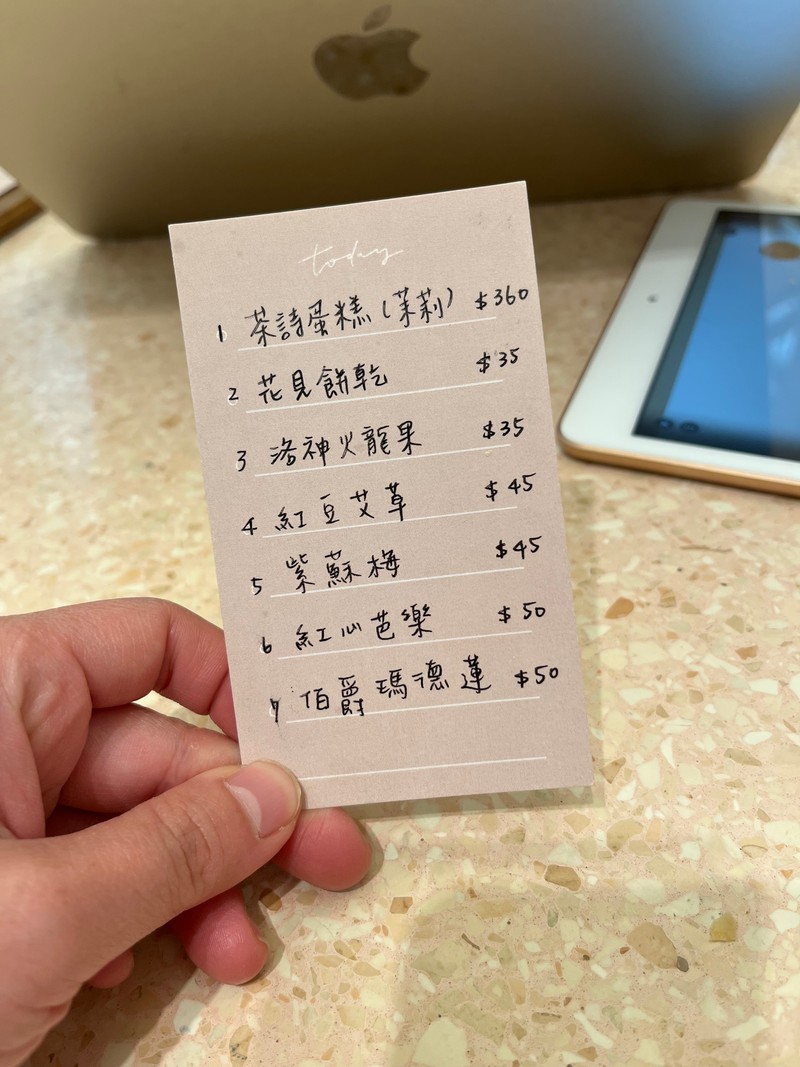 today
1 茶詩蛋糕(茉莉) $360
2 花見餅乾 $35
3 洛神火龍果 $35
4 紅豆艾草 $45
5 紫蘇梅 $45
6 紅心芭樂 $50
7 伯爵瑪德蓮 $50